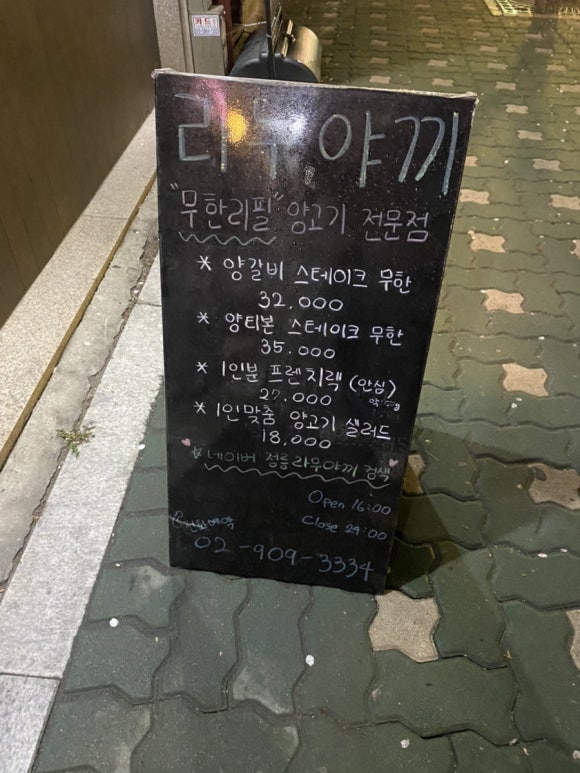 카드
라무야끼
"무한리필" 양고기 전문점
* 양갈비 스테이크 무한
32,000
* 양티본 스테이크 무한
35.000
* 1인분 프렌치랙 (안심)
27,000
* 1인맞춤 양고기 샐러드
18,000
* 네이버 정릉 라무야끼 검색
Open 16:00
Close 24:00
02-909-3334